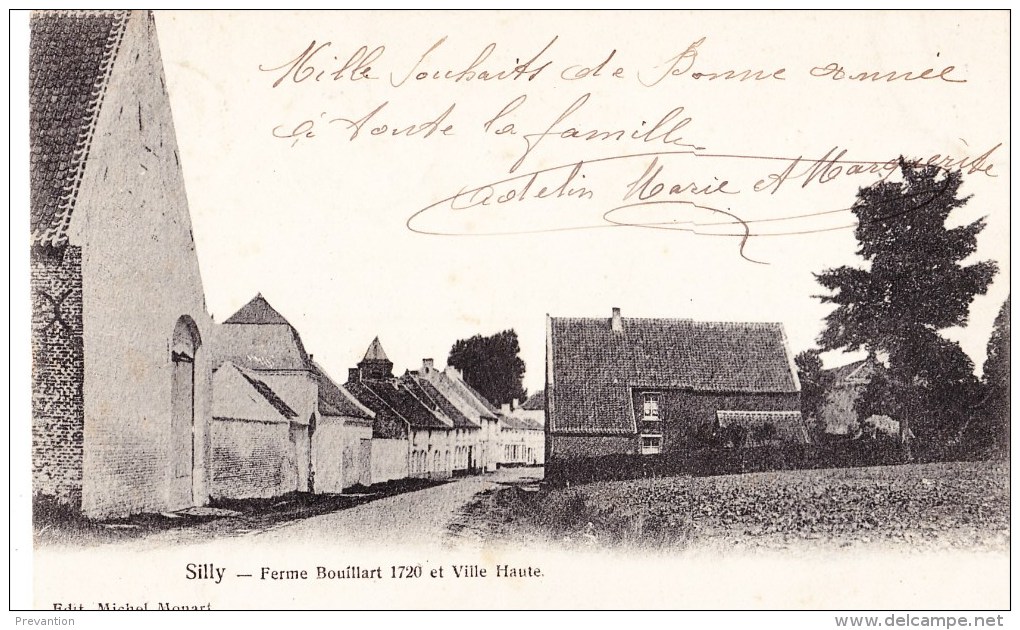 Mille Souhaits de Bonne Année
à toute la famille
Adelin Marie et Marguerite
Silly — Ferme Bouillart 1720 et Ville Haute.
Edit. Michel Monart
Prevantion
www.delcampe.net